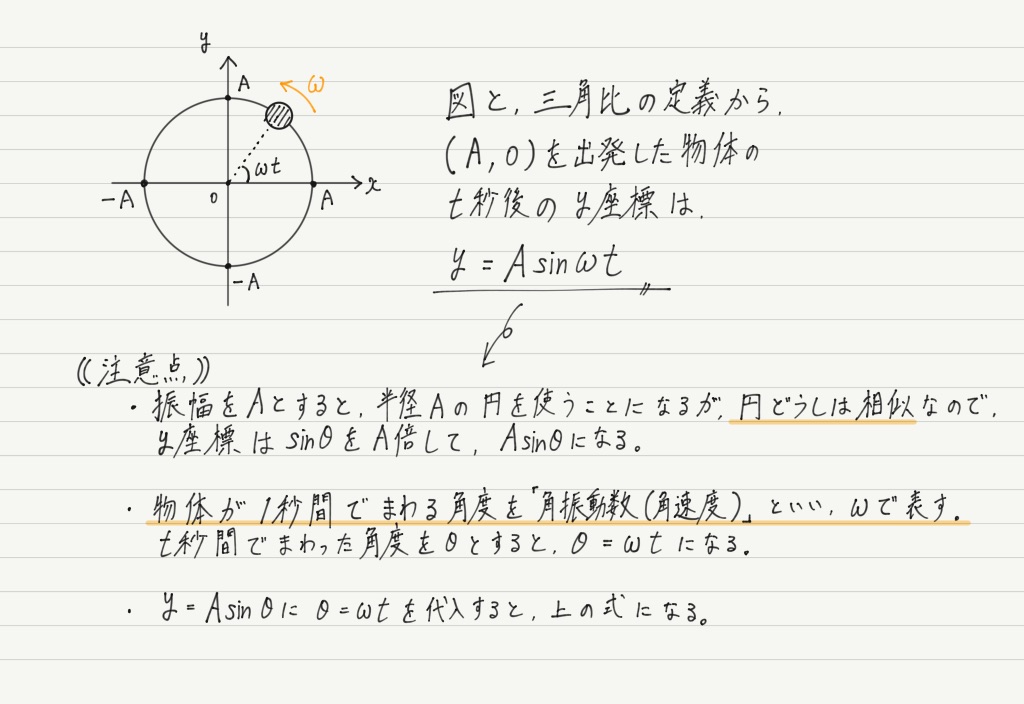 y
A
ω
ωt
-A
0
A
x
-A
図と、三角比の定義から、
(A, 0)を出発した物体の
t秒後のy座標は、
y = A sin ωt
《注意点》
・振幅をAとすると、半径Aの円を使うことになるが、円どうしは相似なので、
y座標はsinθをA倍して、Asinθになる。
・物体が1秒間でまわる角度を「角振動数(角速度)」といい、ωで表す。
t秒間でまわった角度をθとすると、θ = ωt になる。
・y = A sin θに θ = ωt を代入すると、上の式になる。